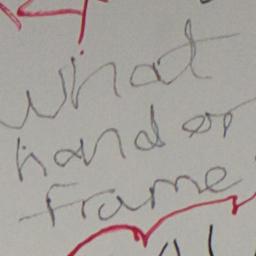 What
hand or
frame